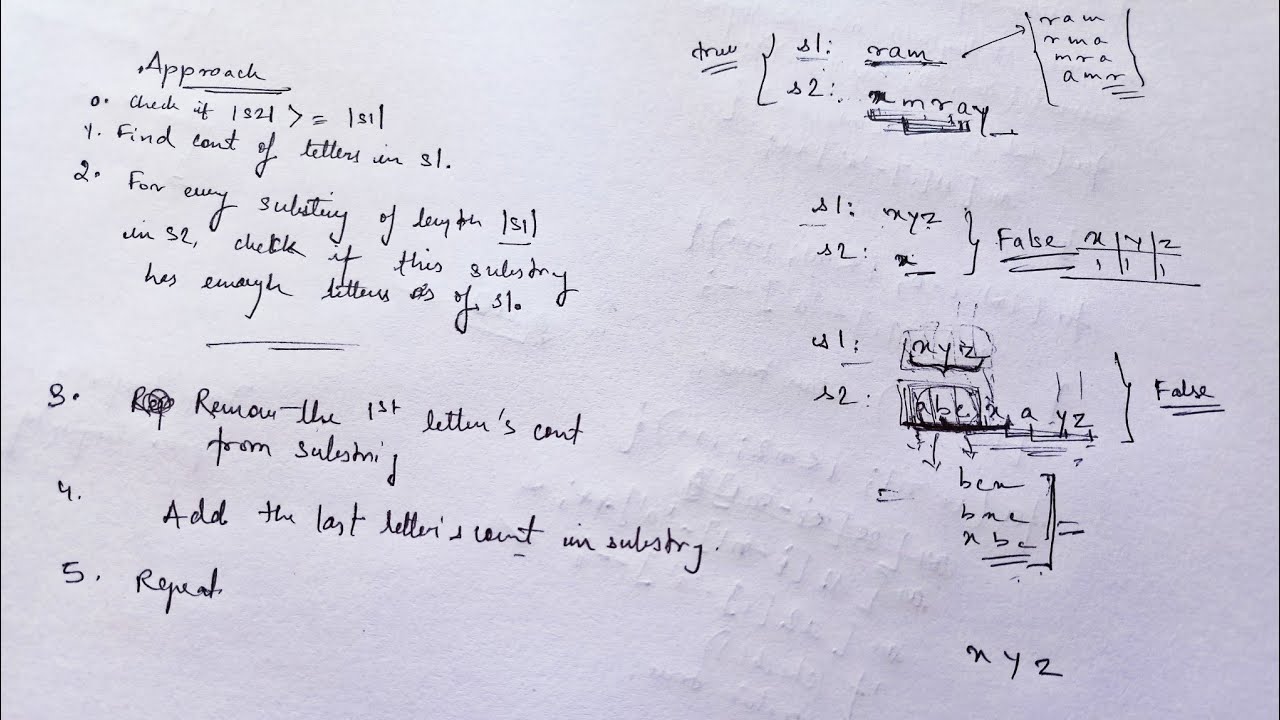 Approach
0. Check if |s2| >= |s1|
1. Find count of letters in s1.
2. For every substring of length |s1|
in s2, check if this substring
has enough letters of s1.
3. Remove the 1st letter's count
from substring
4. Add the last letter's count in substring.
5. Repeat
true { s1: ram
s2: xmray
ram
rma
mra
amr
s1: xyz
s2: x
} False
x | y | z
1 | 1 | 1
s1: xyz
s2: abc x a yz
} False
bcx
bxc
xbc
=
=
x y z